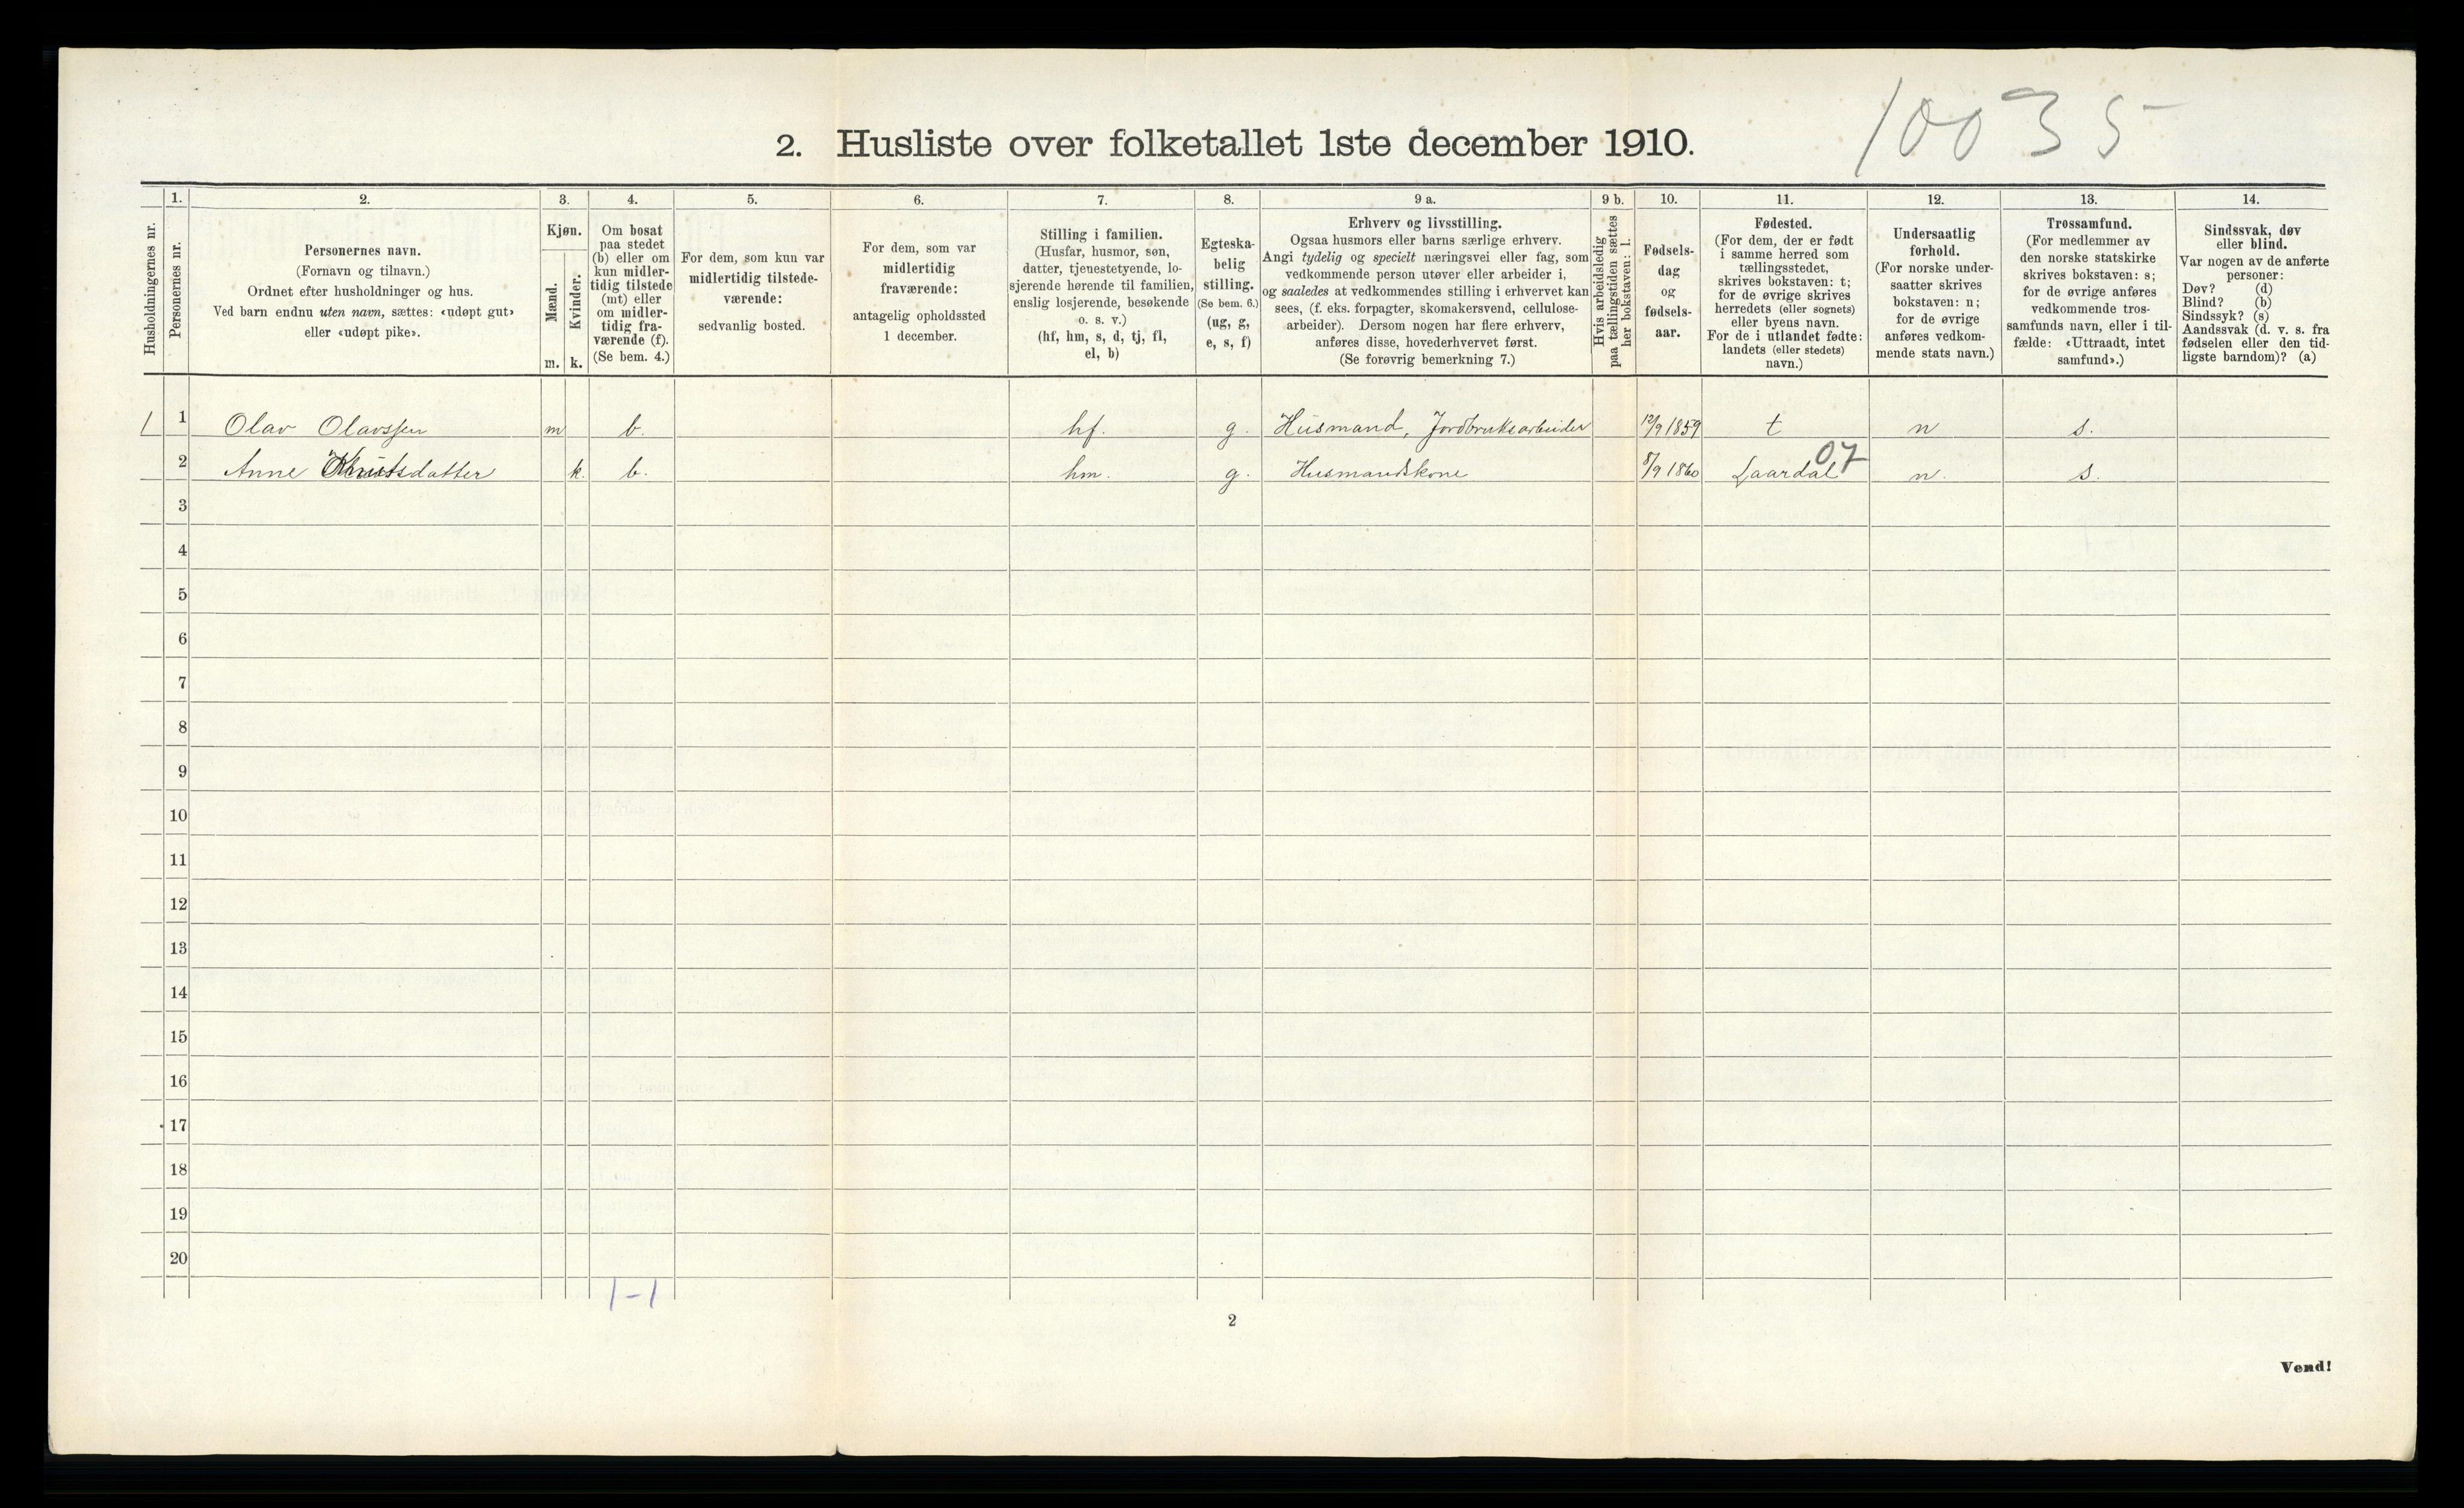 10035
2. Husliste over folketallet 1ste december 1910.
1. 2. 3. 4. 5. 6. 7. 8. 9 a. 9 b. 10. 11. 12. 13. 14.
Husholdningernes nr.
Personernes nr.
Personernes navn.
(Fornavn og tilnavn.)
Ordnet efter husholdninger og hus.
Ved barn endnu uten navn, sættes: «udøpt gut»
eller «udøpt pike».
Kjøn.
Mænd.
Kvinder.
m. k.
Om bosat
paa stedet
(b) eller om
kun midler-
tidig tilstede
(mt) eller
om midler-
tidig fra-
værende (f).
(Se bem. 4.)
For dem, som kun var
midlertidig tilstede-
værende:
sedvanlig bosted.
For dem, som var
midlertidig
fraværende:
antagelig opholdssted
1 december.
Stilling i familien.
(Husfar, husmor, søn,
datter, tjenestetyende, lo-
sjerende hørende til familien,
enslig losjerende, besøkende
o. s. v.)
(hf, hm, s, d, tj, fl,
el, b)
Egteska-
belig
stilling.
(Se bem. 6.)
(ug, g,
e, s, f)
Erhverv og livsstilling.
Ogsaa husmors eller barns særlige erhverv.
Angi tydelig og specielt næringsvei eller fag, som
vedkommende person utøver eller arbeider i,
og saaledes at vedkommendes stilling i erhvervet kan
sees, (f. eks. forpagter, skomakersvend, cellulose-
arbeider). Dersom nogen har flere erhverv,
anføres disse, hovederhvervet først.
(Se forøvrig bemerkning 7.)
Hvis arbeidsledig
paa tællingstiden sættes
her bokstaven: l.
Fødsels-
dag
og
fødsels-
aar.
Fødested.
(For dem, der er født
i samme herred som
tællingsstedet,
skrives bokstaven: t;
for de øvrige skrives
herredets (eller sognets)
eller byens navn.
For de i utlandet fødte:
landets (eller stedets)
navn.)
Undersaatlig
forhold.
(For norske under-
saatter skrives
bokstaven: n;
for de øvrige
anføres vedkom-
mende stats navn.)
Trossamfund.
(For medlemmer av
den norske statskirke
skrives bokstaven: s;
for de øvrige anføres
vedkommende tros-
samfunds navn, eller i til-
fælde: «Uttraadt, intet
samfund».)
Sindssvak, døv
eller blind.
Var nogen av de anførte
personer:
Døv? (d)
Blind? (b)
Sindssyk? (s)
Aandssvak (d. v. s. fra
fødselen eller den tid-
ligste barndom)? (a)
1 1 Olav Olavssen m b. hf. g. Husmand, Jordbruksarbeider 12/9 1859 t n s.
2 Anne Knutsdatter k. b. hm. g. Husmandskone 8/9 1860 Laardal 07 n. s.
3
4
5
6
7
8
9
10
11
12
13
14
15
16
17
18
19
20
1-1
2
Vend!